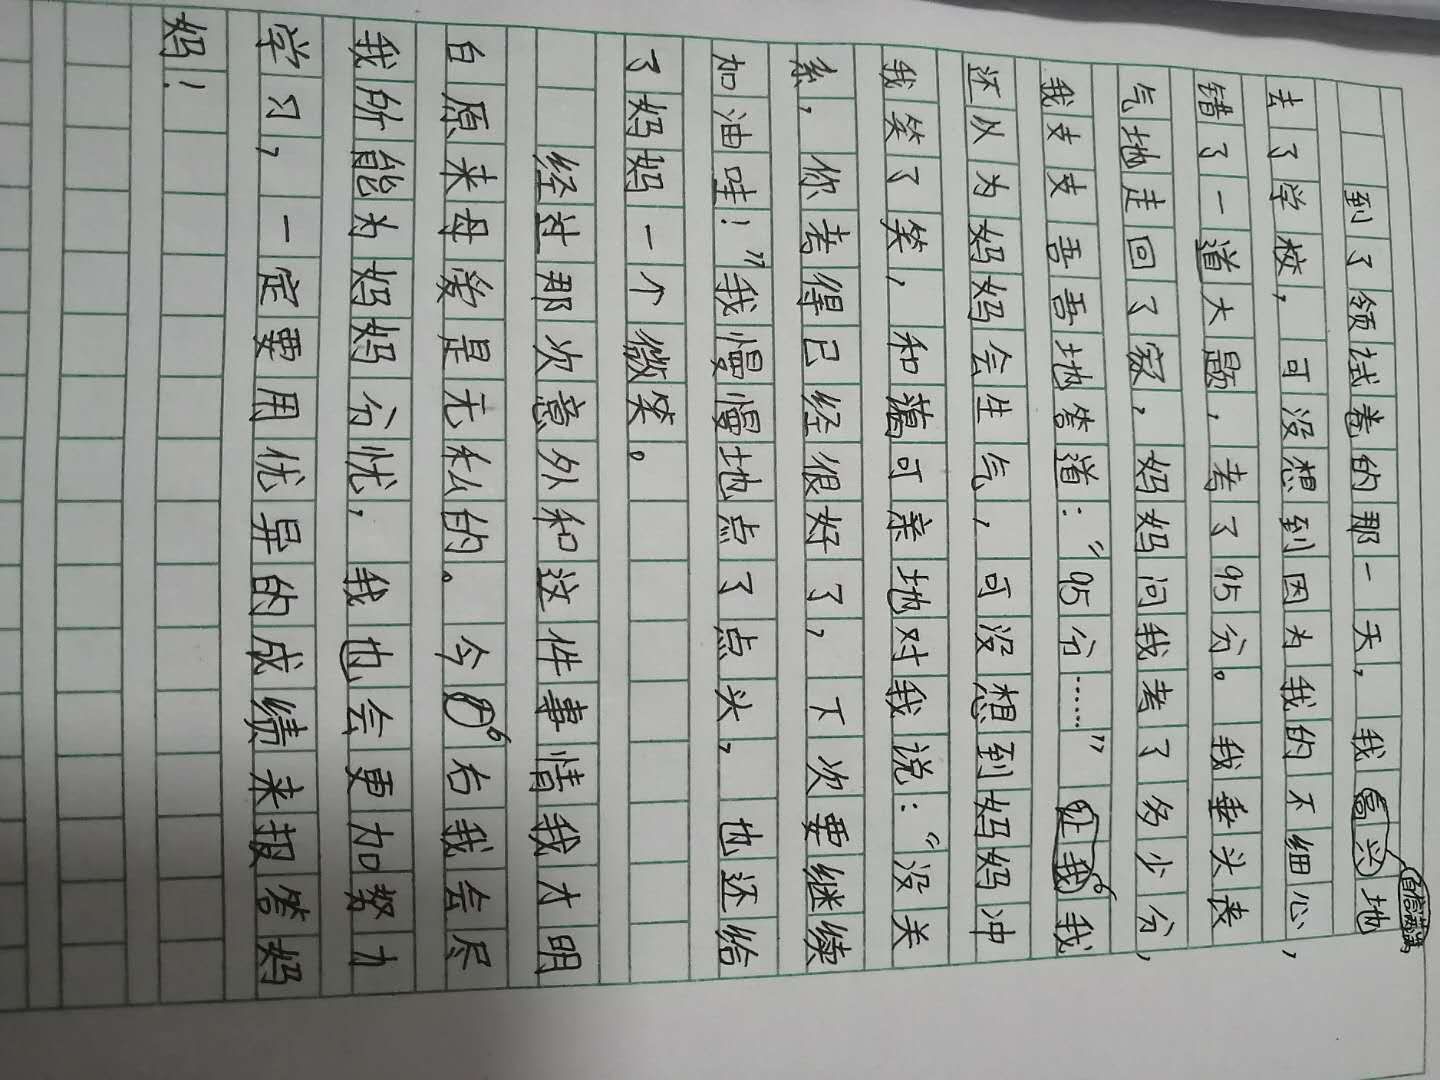 到了领试卷的那一天，我高兴地
自信满满
去了学校，可没想到因为我的不细心，
错了一道大题，考了95分。我垂头丧
气地走回了家，妈妈问我考了多少分，
我支支吾吾地答道：“95分……”我
还以为妈妈会生气，可没想到妈妈冲
我笑了笑，和蔼可亲地对我说：“没关
系，你考得已经很好了，下次要继续
加油哇！”我慢慢地点了点头，也还给
了妈妈一个微笑。
经过那次意外和这件事情我才明
白原来母爱是无私的。今右我会尽
我所能为妈妈分忧，我也会更加努力
学习，一定要用优异的成绩来报答妈
妈！